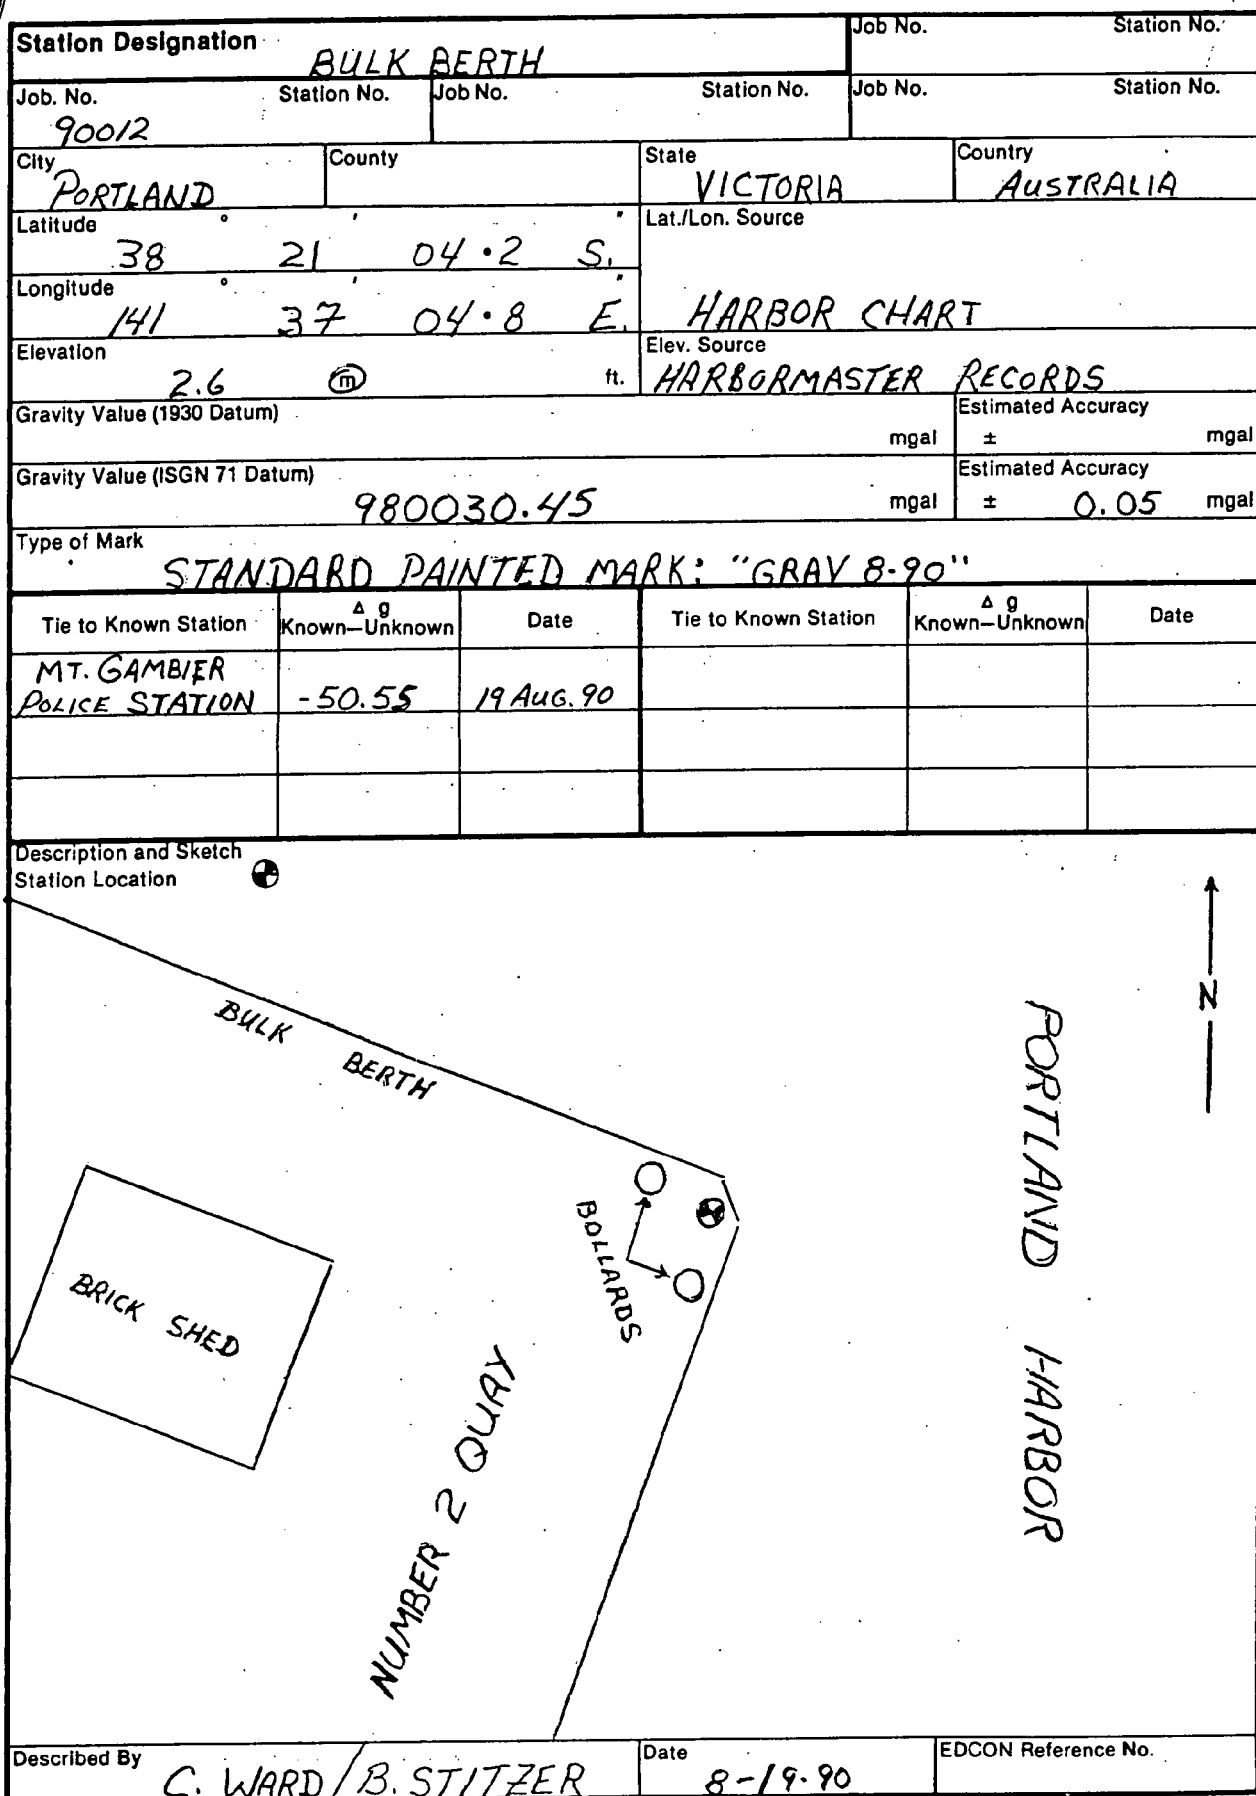 Station Designation BULK BERTH Job No. Station No.
Job. No. 90012 Station No. Job No. Station No. Job No. Station No.
City PORTLAND County State VICTORIA Country AUSTRALIA
Latitude 38 ° 21 ' 04.2 " S. Lat./Lon. Source
Longitude 141 ° 37 ' 04.8 " E. HARBOR CHART
Elevation 2.6 m ft. Elev. Source HARBORMASTER RECORDS
Gravity Value (1930 Datum) mgal Estimated Accuracy ± mgal
Gravity Value (ISGN 71 Datum) 980030.45 mgal Estimated Accuracy ± 0.05 mgal
Type of Mark STANDARD PAINTED MARK: "GRAV 8-90"
Tie to Known Station Δ g Known–Unknown Date Tie to Known Station Δ g Known–Unknown Date
MT. GAMBIER
POLICE STATION -50.55 19 AUG. 90
Description and Sketch
Station Location
N
BULK BERTH
PORTLAND HARBOR
BOLLARDS
BRICK SHED
NUMBER 2 QUAY
Described By C. WARD/B. STITZER Date 8-19-90 EDCON Reference No.